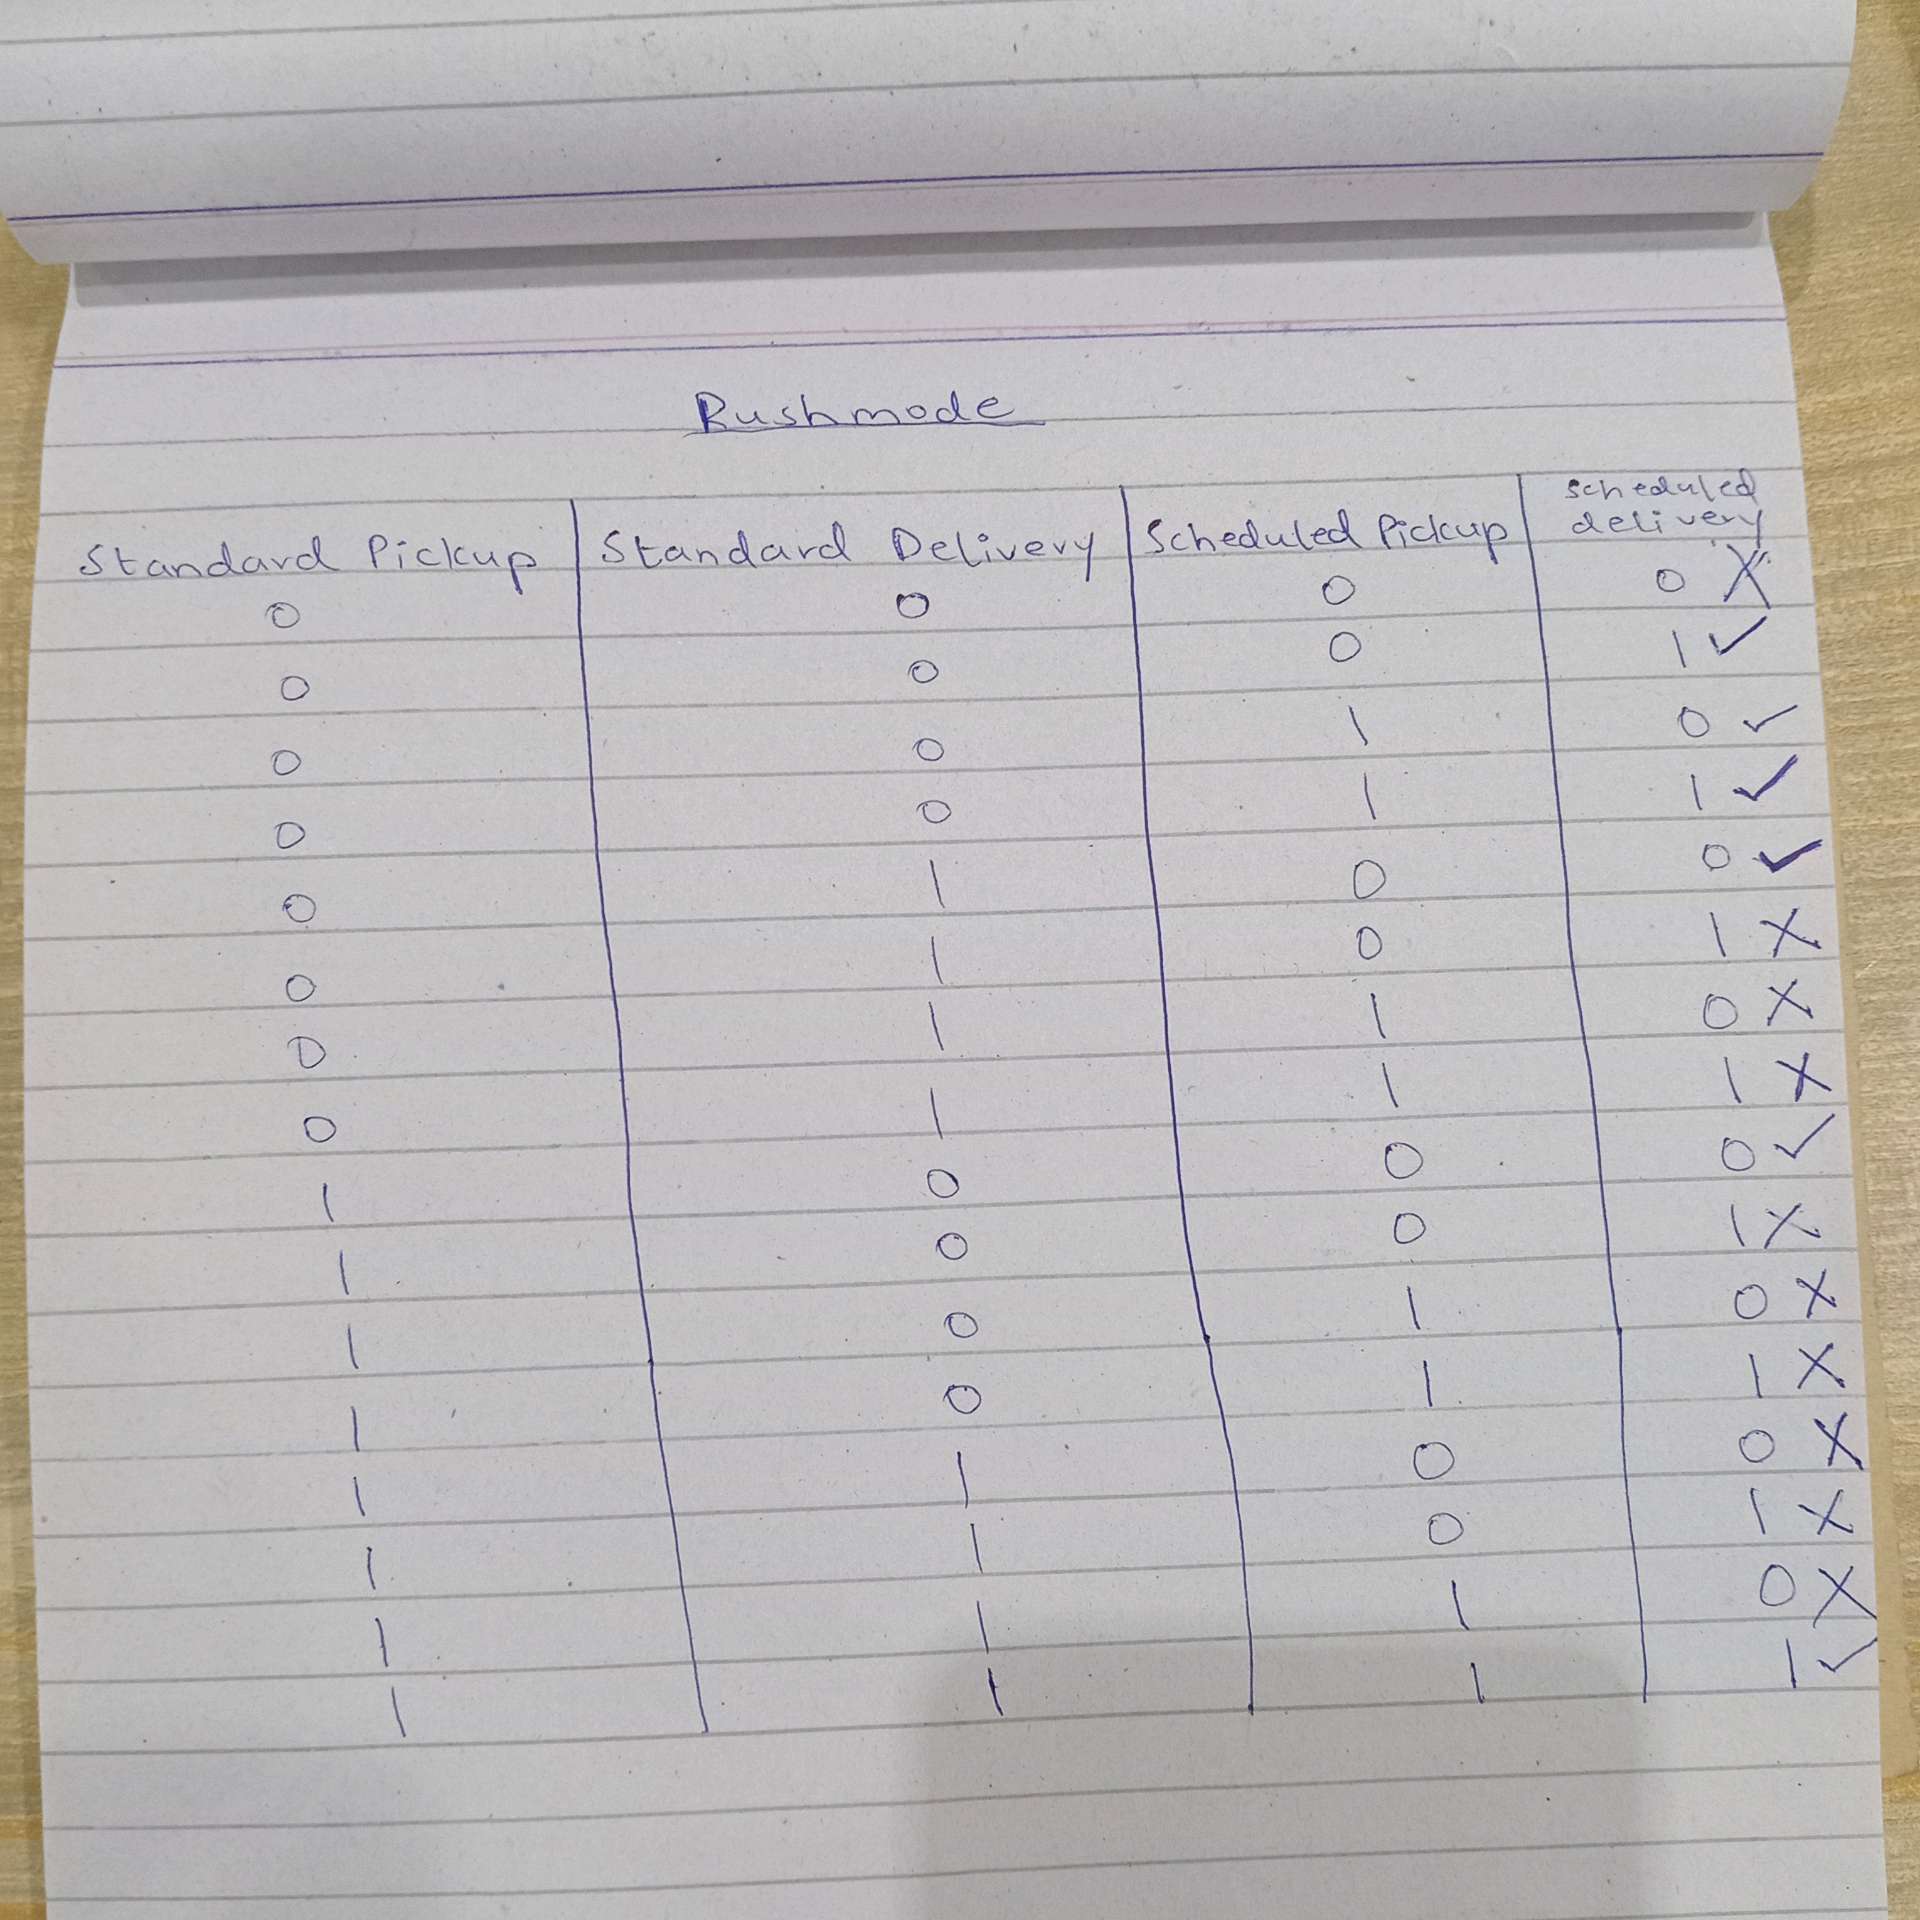 Rushmode
Standard Pickup | Standard Delivery | Scheduled Pickup | scheduled delivery
0 0 0 0 X
0 0 0 1 ✓
0 0 1 0 ✓
0 0 1 1 ✓
0 1 0 0 ✓
0 1 0 1 X
0 1 1 0 X
0 1 1 1 X
1 0 0 0 ✓
1 0 0 1 X
1 0 1 0 X
1 0 1 1 X
1 1 0 0 X
1 1 0 1 X
1 1 1 0 X
1 1 1 1 ✓